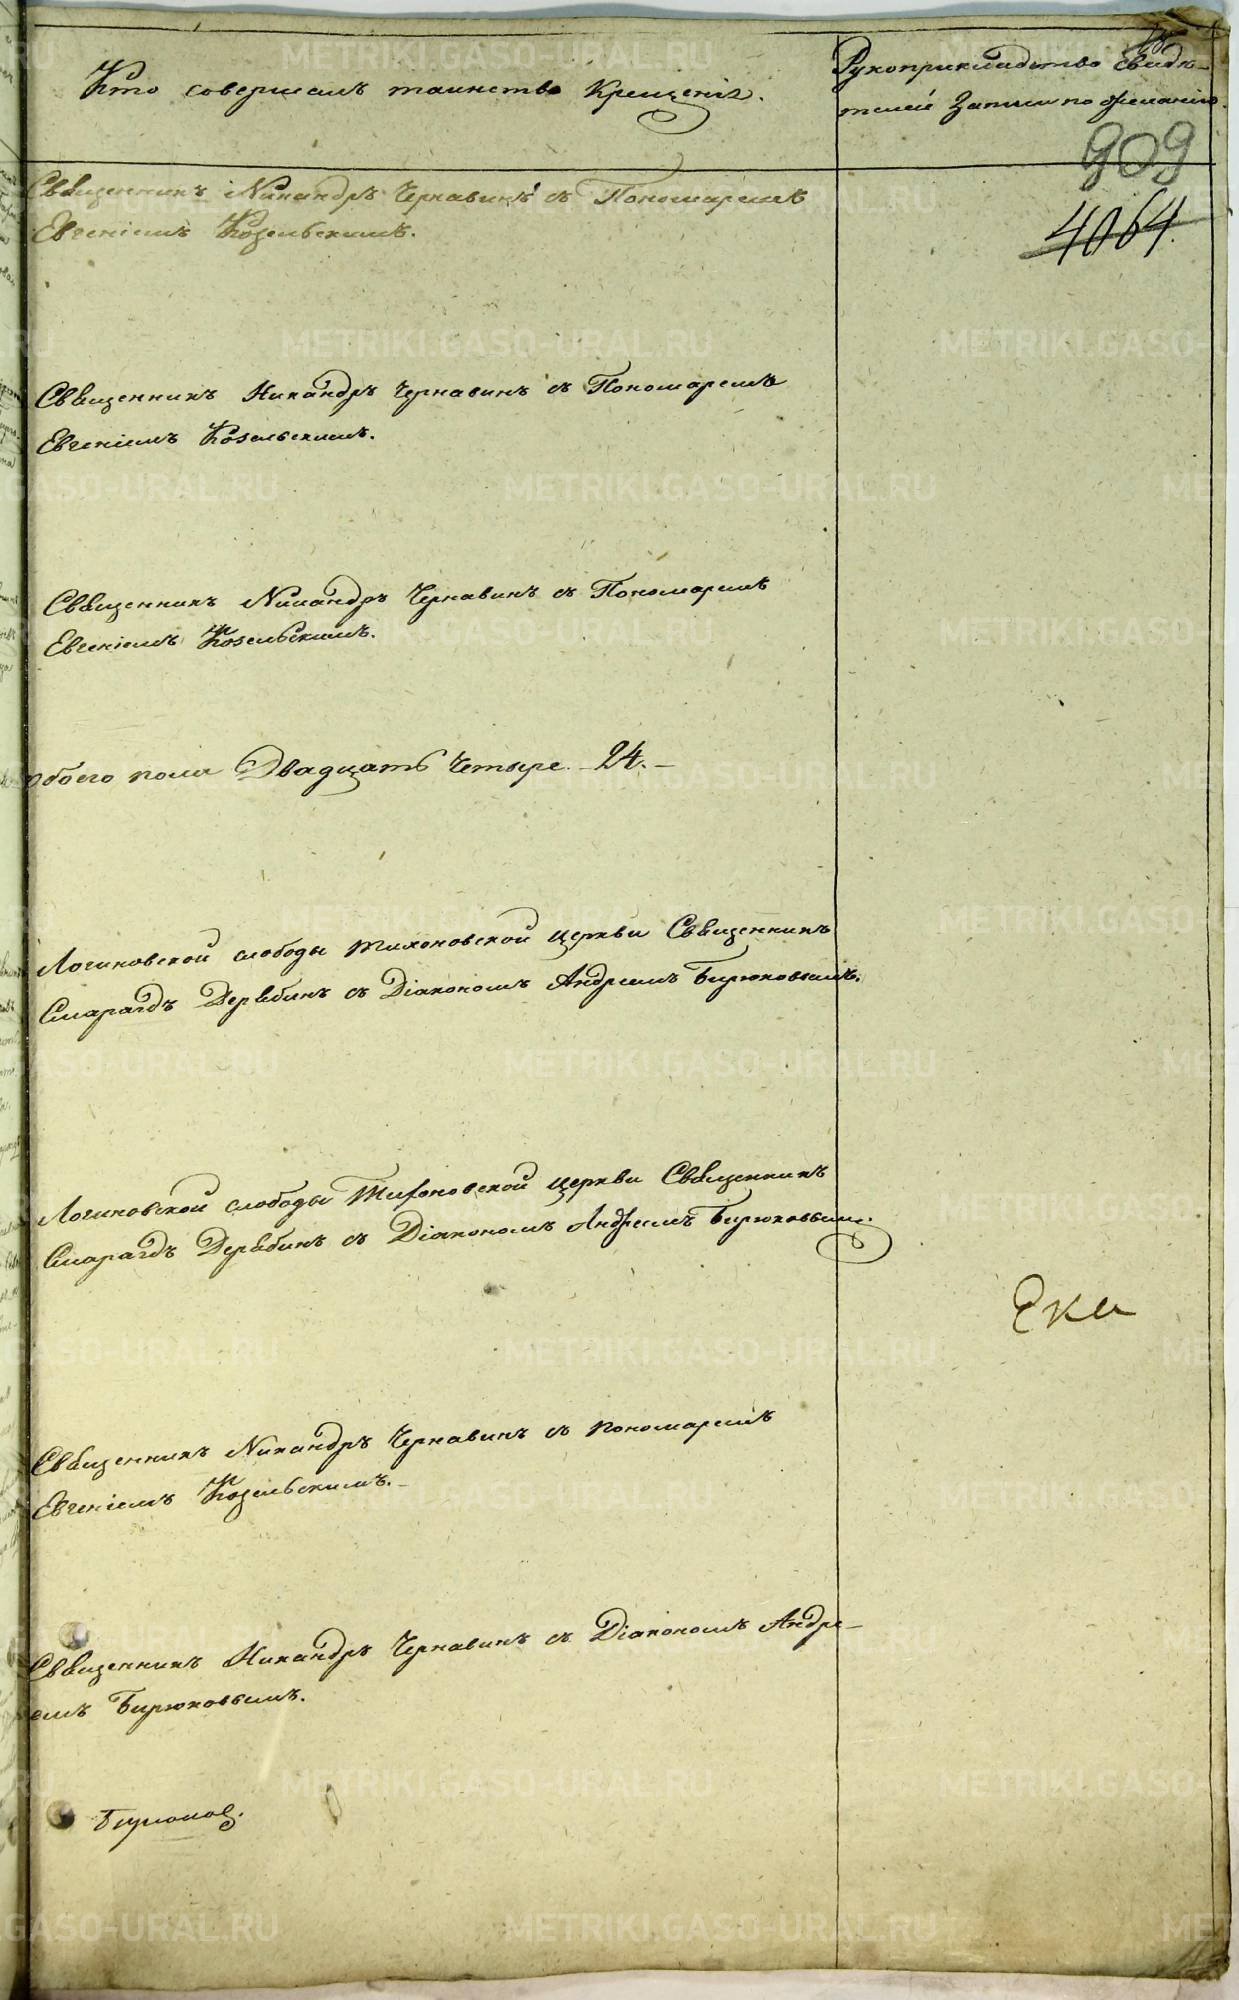 Кто совершалъ таинство Крещенія.
Рукоприкладство Свидѣ-
телей записи по желанію.
909
4064.
Священникъ Никандръ Чернавинъ съ Пономаремъ
Евгеніемъ Козельскимъ.
Священникъ Никандръ Чернавинъ съ Пономаремъ
Евгеніемъ Козельскимъ.
Священникъ Никандръ Чернавинъ съ Пономаремъ
Евгеніемъ Козельскимъ.
обоего пола Двадцать Четыре. - 24. -
Логиновской слободы Тихоновской церкви Священникъ
Смарагдъ Дерябинъ съ Діакономъ Андреемъ Бирюковымъ.
Логиновской слободы Тихоновской церкви Священникъ
Смарагдъ Дерябинъ съ Діакономъ Андреемъ Бирюковымъ.
Ека
Священникъ Никандръ Чернавинъ съ пономаремъ
Евгеніемъ Козельскимъ. -
Священникъ Никандръ Чернавинъ съ Діакономъ Андре-
емъ Бирюковымъ.
Бирюковъ.
METRIKI.GASO-URAL.RU